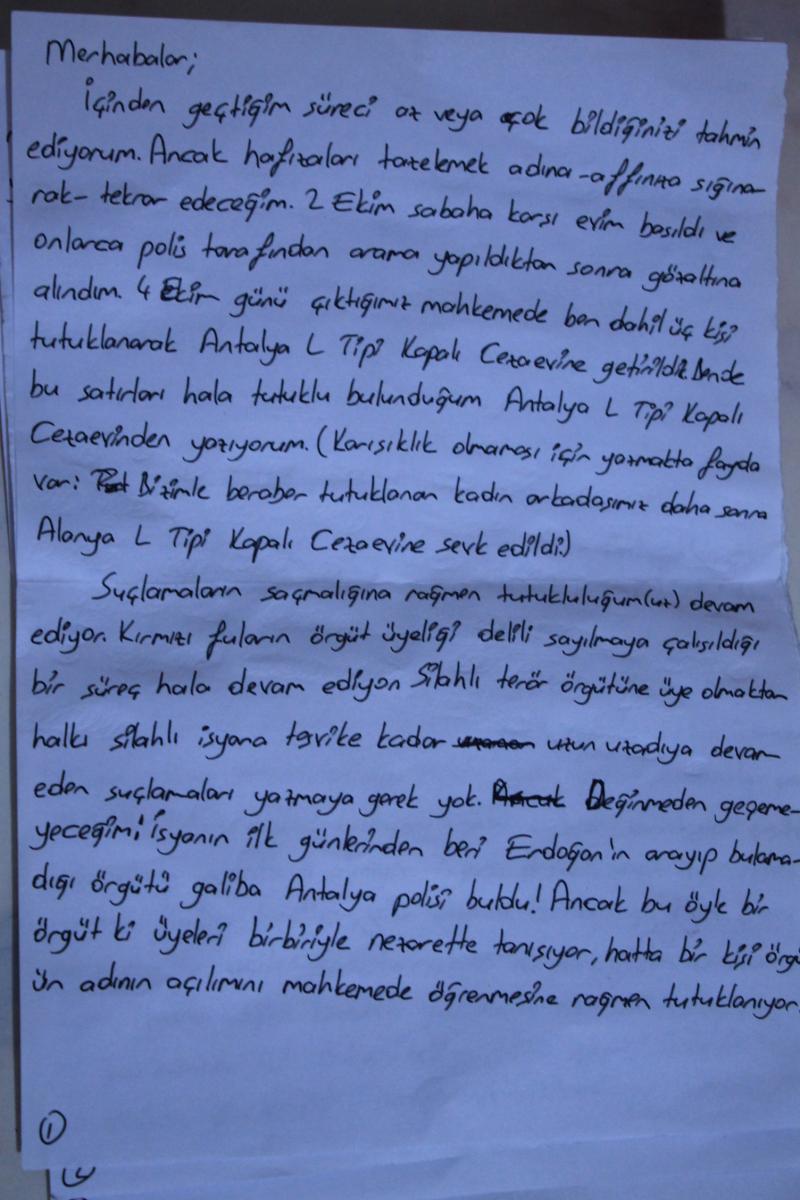 Merhabalar;
İçinden geçtiğim süreci az veya çok bildiğinizi tahmin
ediyorum. Ancak hafızaları tazelemek adına -affınıza sığına-
rak- tekrar edeceğim. 2 Ekim sabaha karşı evim basıldı ve
onlarca polis tarafından arama yapıldıktan sonra gözaltına
alındım. 4 Ekim günü çıktığımız mahkemede ben dahil üç kişi
tutuklanarak Antalya L Tipi Kapalı Cezaevine getirildik. Bende
bu satırları hala tutuklu bulunduğum Antalya L Tipi Kapalı
Cezaevinden yazıyorum. (Karışıklık olmaması için yazmakta fayda
var: Bizimle beraber tutuklanan kadın arkadaşımız daha sonra
Alanya L Tipi Kapalı Cezaevine sevk edildi.)
Suçlamaların saçmalığına rağmen tutukluluğum(uz) devam
ediyor. Kırmızı fuların örgüt üyeliği delili sayılmaya çalışıldığı
bir süreç hala devam ediyor. Silahlı terör örgütüne üye olmaktan
halkı silahlı isyana teşvike kadar uzun uzadıya devam
eden suçlamaları yazmaya gerek yok. Değinmeden geçeme-
yeceğim; isyanın ilk günlerinden beri Erdoğan'ın arayıp bulama-
dığı örgütü galiba Antalya polisi buldu! Ancak bu öyle bir
örgüt ki üyeleri birbiriyle nezarette tanışıyor, hatta bir kişi örgü
ün adının açılımını mahkemede öğrenmesine rağmen tutuklanıyor.
1